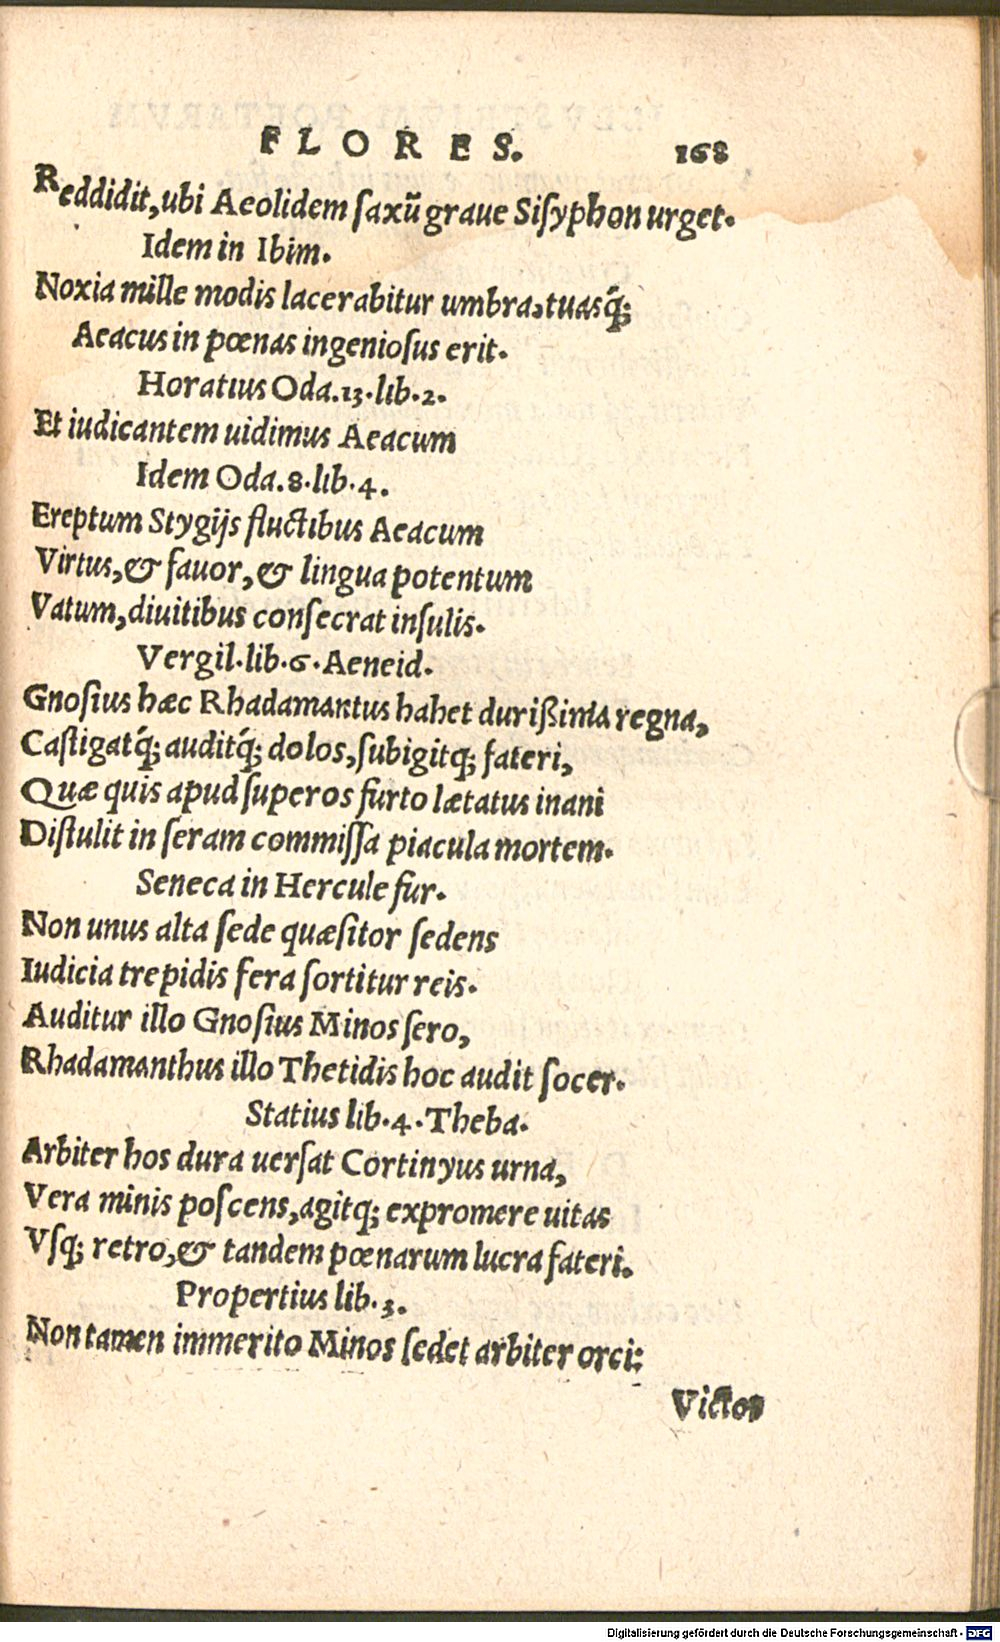 FLORES. 168
Reddidit, ubi Aeolidem ſaxũ graue Siſyphon urget.
Idem in Ibim.
Noxia mille modis lacerabitur umbra, tuasq́;
Aeacus in pœnas ingenioſus erit.
Horatius Oda.13.lib.2.
Et iudicantem uidimus Aeacum
Idem Oda.8.lib.4.
Ereptum Stygijs fluctibus Aeacum
Virtus, & fauor, & lingua potentum
Vatum, diuitibus conſecrat inſulis.
Vergil.lib.6.Aeneid.
Gnoſius hæc Rhadamantus habet durißima regna,
Caſtigatq́; auditq́; dolos, ſubigitq; fateri,
Quæ quis apud ſuperos furto lætatus inani
Diſtulit in ſeram commiſſa piacula mortem.
Seneca in Hercule fur.
Non unus alta ſede quæſitor ſedens
Iudicia trepidis fera ſortitur reis.
Auditur illo Gnoſius Minos ſero,
Rhadamanthus illo Thetidis hoc audit ſocer.
Statius lib.4.Theba.
Arbiter hos dura uerſat Cortinyus urna,
Vera minis poſcens, agitq; expromere uitas
Vſq; retro, & tandem pœnarum lucra fateri.
Propertius lib.3.
Non tamen immerito Minos ſedet arbiter orci:
Victor
Digitalisierung gefördert durch die Deutsche Forschungsgemeinschaft - DFG